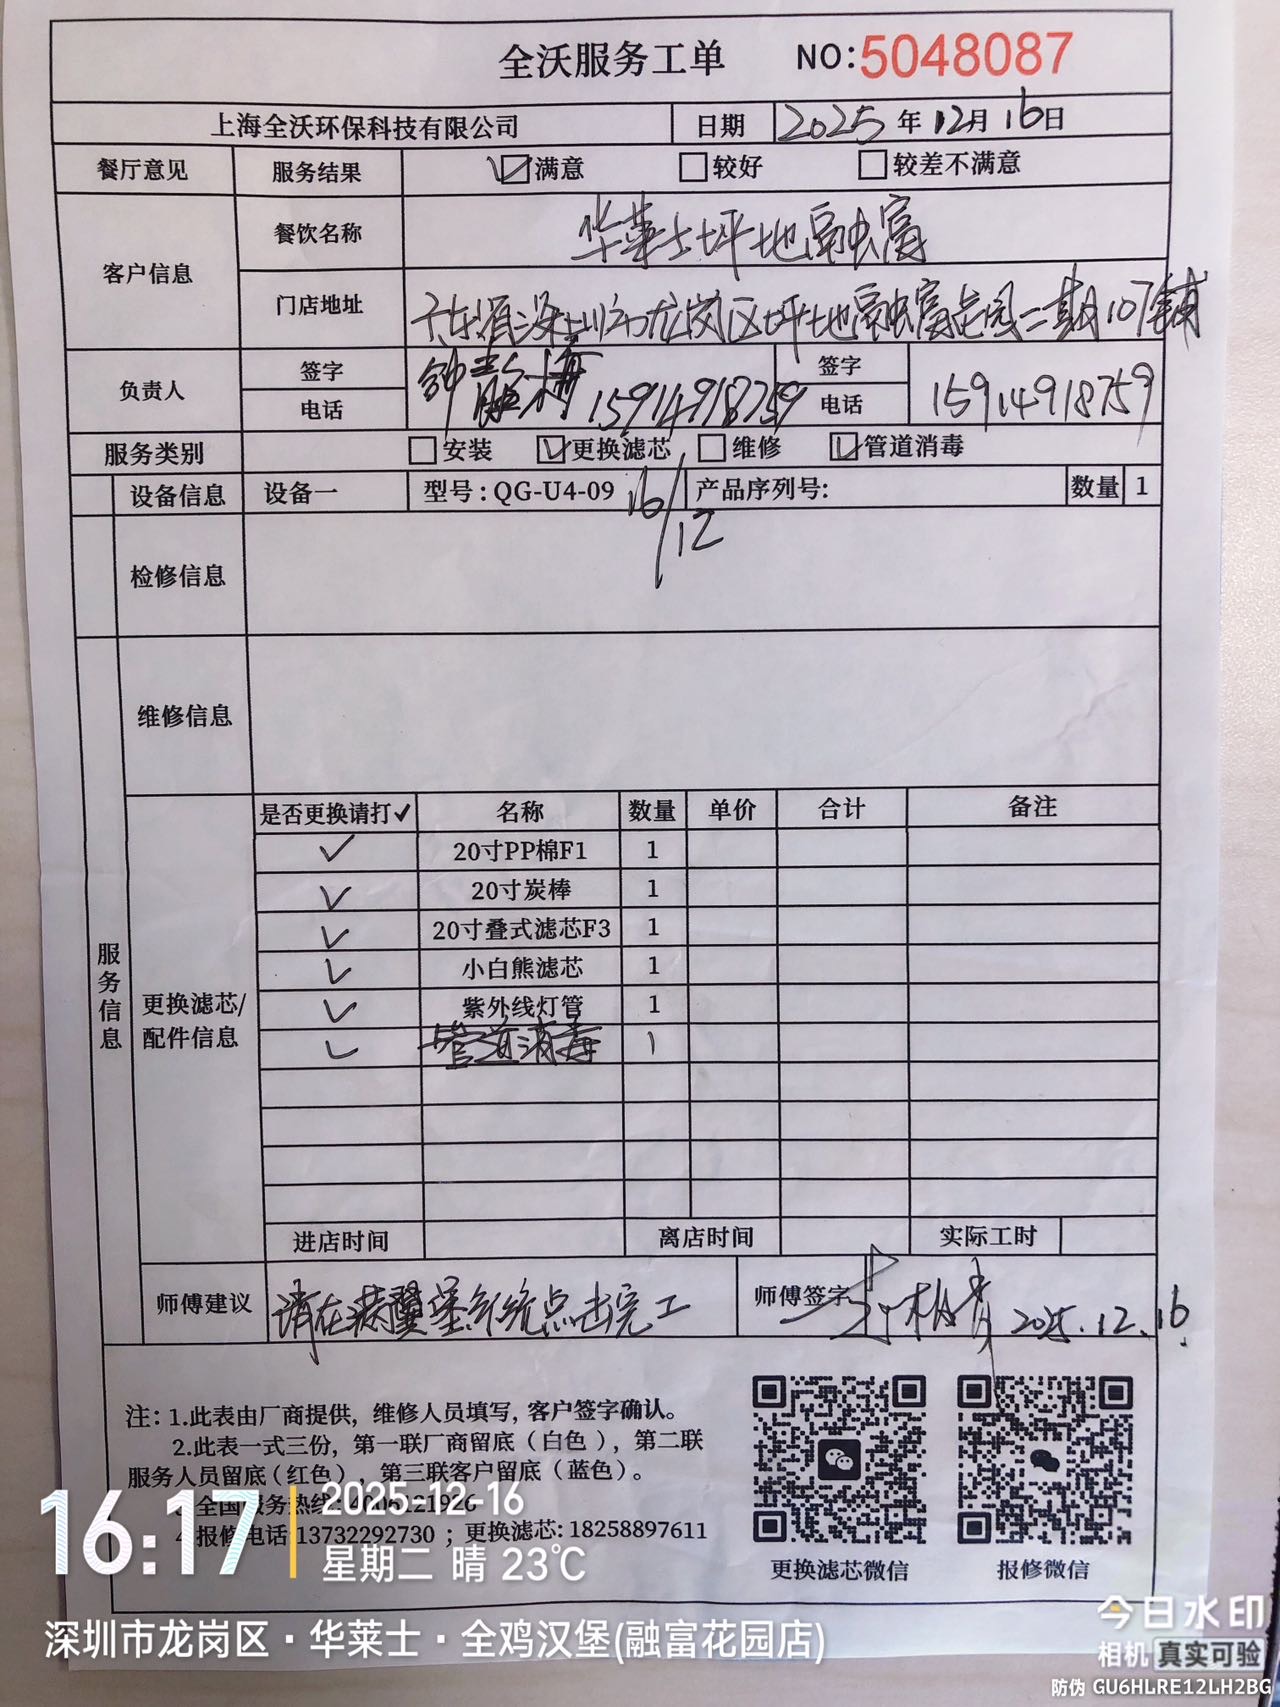 全沃服务工单 NO:5048087
上海全沃环保科技有限公司 日期 2025年12月16日
餐厅意见 服务结果 ☑满意 □较好 □较差不满意
客户信息 餐饮名称 华莱士坪地融富
门店地址 广东省深圳市龙岗区坪地融富花园二期107铺
负责人 签字 钟 梅 签字
电话 15914918759 电话 15914918759
服务类别 □安装 ☑更换滤芯 □维修 ☑管道消毒
设备信息 设备一 型号:QG-U4-09 产品序列号: 数量 1
16/12
检修信息
维修信息
是否更换请打✓ 名称 数量 单价 合计 备注
✓ 20寸PP棉F1 1
✓ 20寸炭棒 1
✓ 20寸叠式滤芯F3 1
✓ 小白熊滤芯 1
✓ 紫外线灯管 1
✓ 管道消毒 1
服务信息
更换滤芯/配件信息
进店时间 离店时间 实际工时
师傅建议 请在 翼堡系统点击完工 师傅签字 2025.12.16
注：1.此表由厂商提供，维修人员填写，客户签字确认。
2.此表一式三份，第一联厂商留底（白色），第二联
服务人员留底（红色），第三联客户留底（蓝色）。
全国服务热线:
4.报修电话 13732292730 ；更换滤芯: 18258897611
更换滤芯微信 报修微信
16:17 2025-12-16
星期二 晴 23℃
深圳市龙岗区·华莱士·全鸡汉堡(融富花园店)
今日水印
相机 真实可验
防伪 GU6HLRE12LH2BG